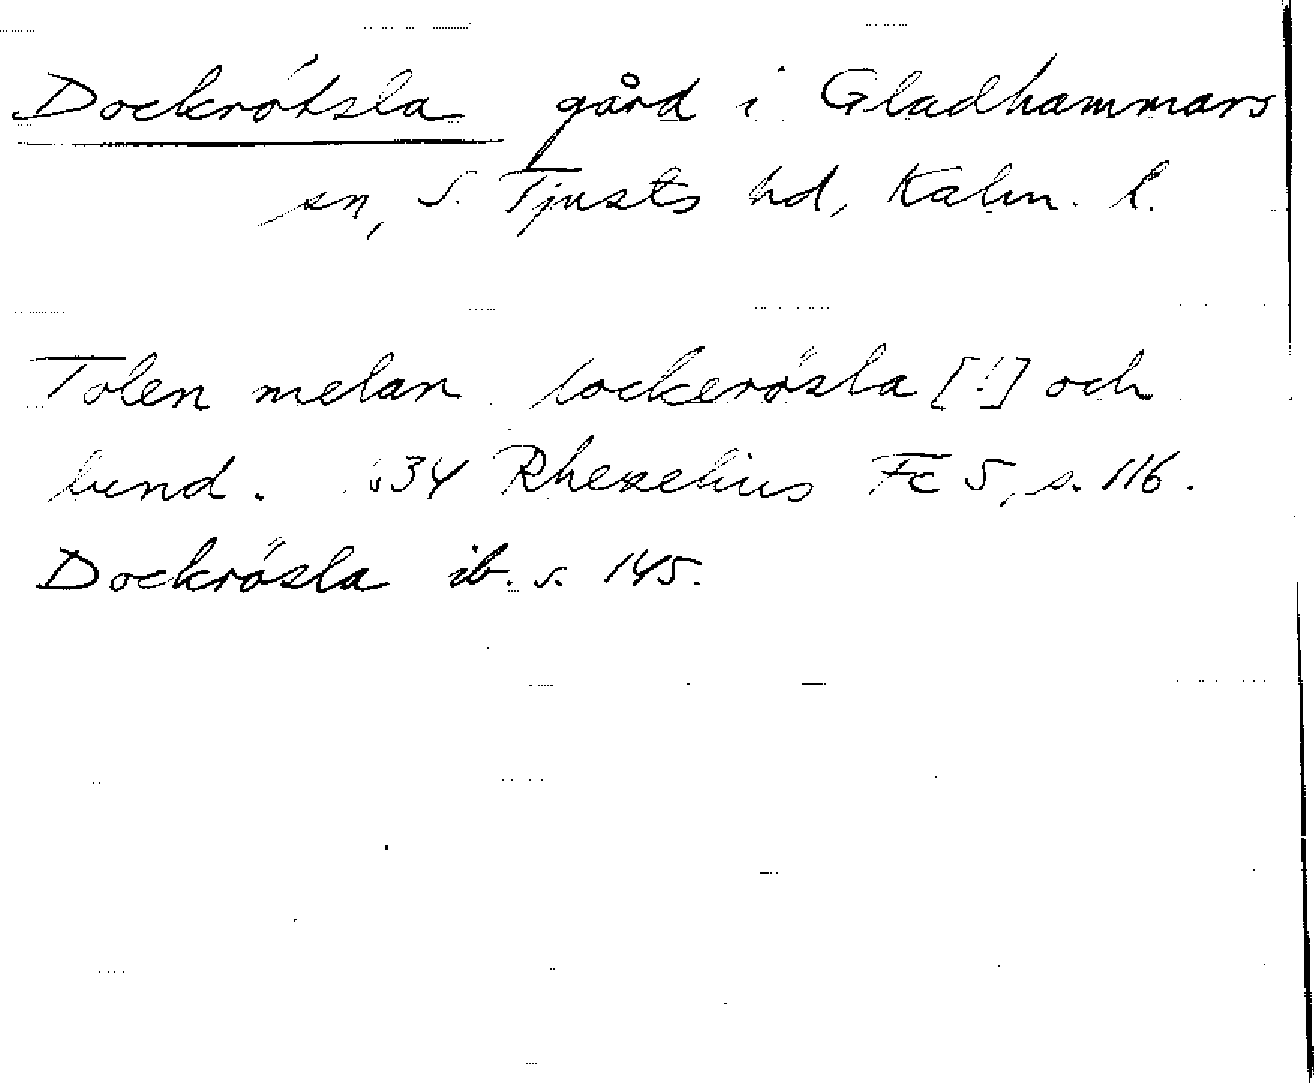 Dockrötsla gård i Gladhammars
sn, S. Tjusts hd, Kalm. l.
Tolen melan lockerösla [!] och
lund. 1634 Rhezelius Fc 5, s. 116.
Dockrösla ib. s. 145.